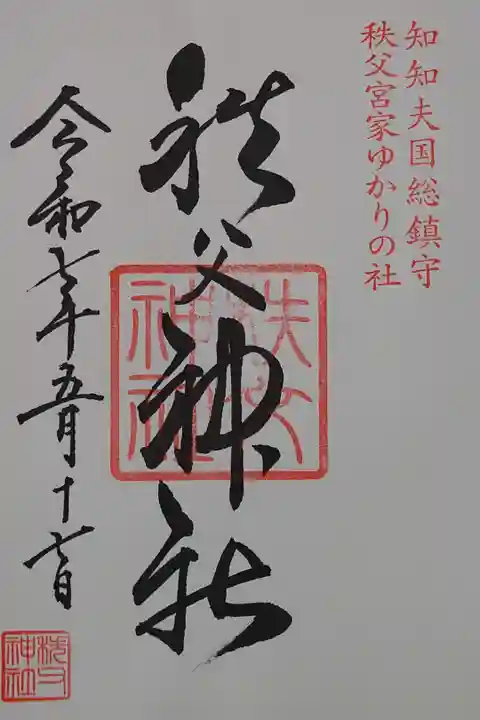 知知夫国総鎮守
秩父宮家ゆかりの社
秩父神社
秩父神社
令和七年五月十七日
秩父神社